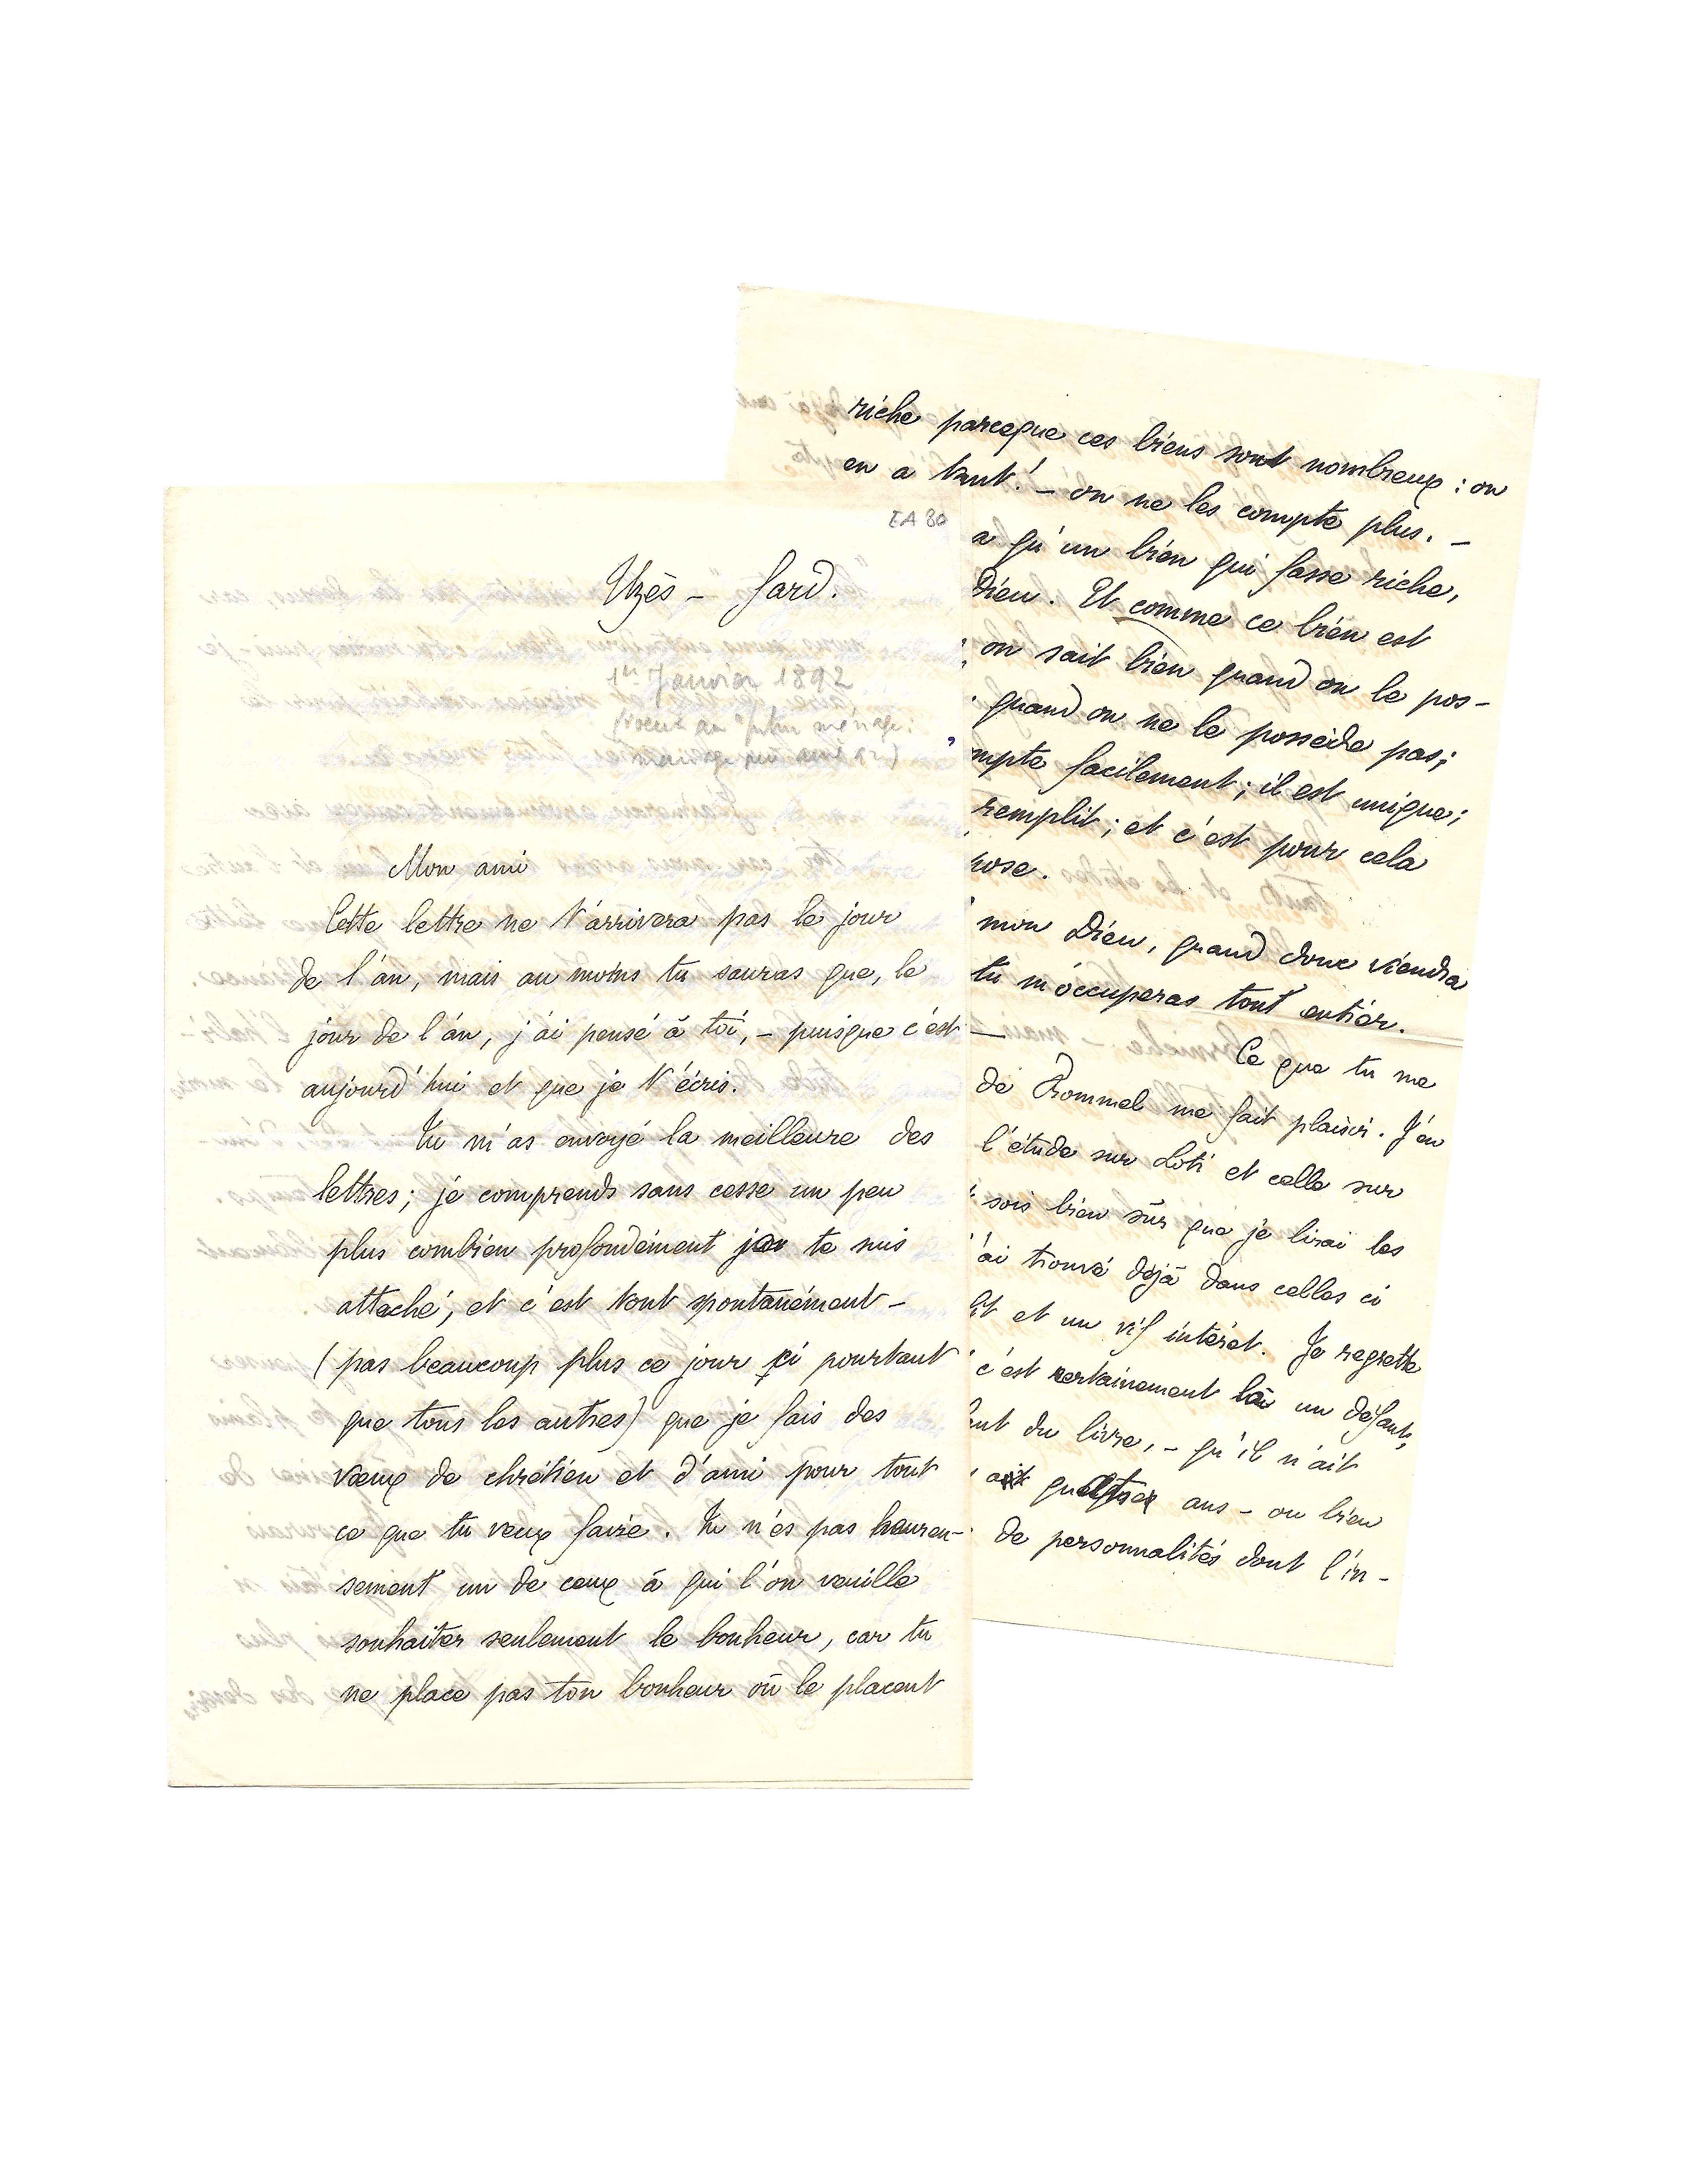 EA 80
Uzès – Gard.
1er Janvier 1892
(voeux au futur ménage:
mariage
Mon ami
Cette lettre ne t'arrivera pas le jour
de l'an, mais au moins tu sauras que, le
jour de l'an, j'ai pensé à toi, – puisque c'est
aujourd'hui et que je t'écris.
Tu m'as envoyé la meilleure des
lettres; je comprends sans cesse un peu
plus combien profondément je te suis
attaché, et c'est tout spontanément –
(pas beaucoup plus ce jour ci pourtant
que tous les autres) que je fais des
vœux de chrétien et d'ami pour tout
ce que tu veux faire. Tu n'es pas heureu-
sement un de ceux à qui l'on veuille
souhaiter seulement le bonheur, car tu
ne place pas ton bonheur où le placent
riche parceque ces biens sont nombreux : on
en a tant! – on ne les compte plus. –
a qu'un bien qui fasse riche,
Dieu. Et comme ce bien est
on sait bien quand on le pos-
quand on ne le possède pas;
mpte facilement; il est unique;
remplit; et c'est pour cela
hose.
mon Dieu, quand donc viendra
tu m'occuperas tout entier.
— Ce que tu me
de Rommel me fait plaisir. J'en
l'étude sur Loti et celle sur
sois bien sûr que je lirai les
'ai trouvé déjà dans celles ci
et un vif intérêt. Je regrette
c'est certainement là un défaut,
ut du livre, – qu'il n'ait
ait quatre ans – ou bien
de personnalités dont l'in-